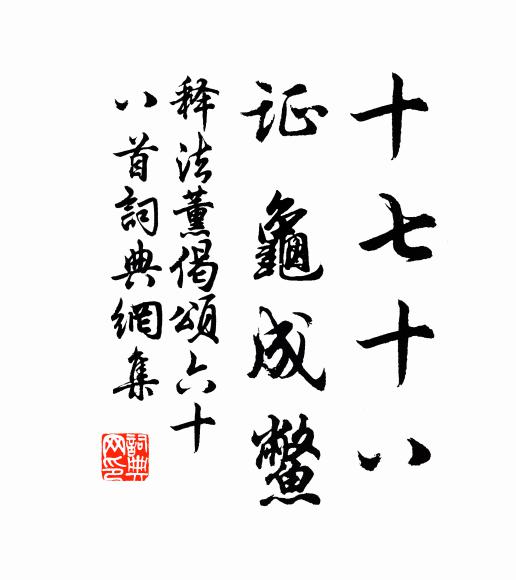 十七十八
证龜成鱉
释法薰偈頌六十
八首詞典網集
詞典网印